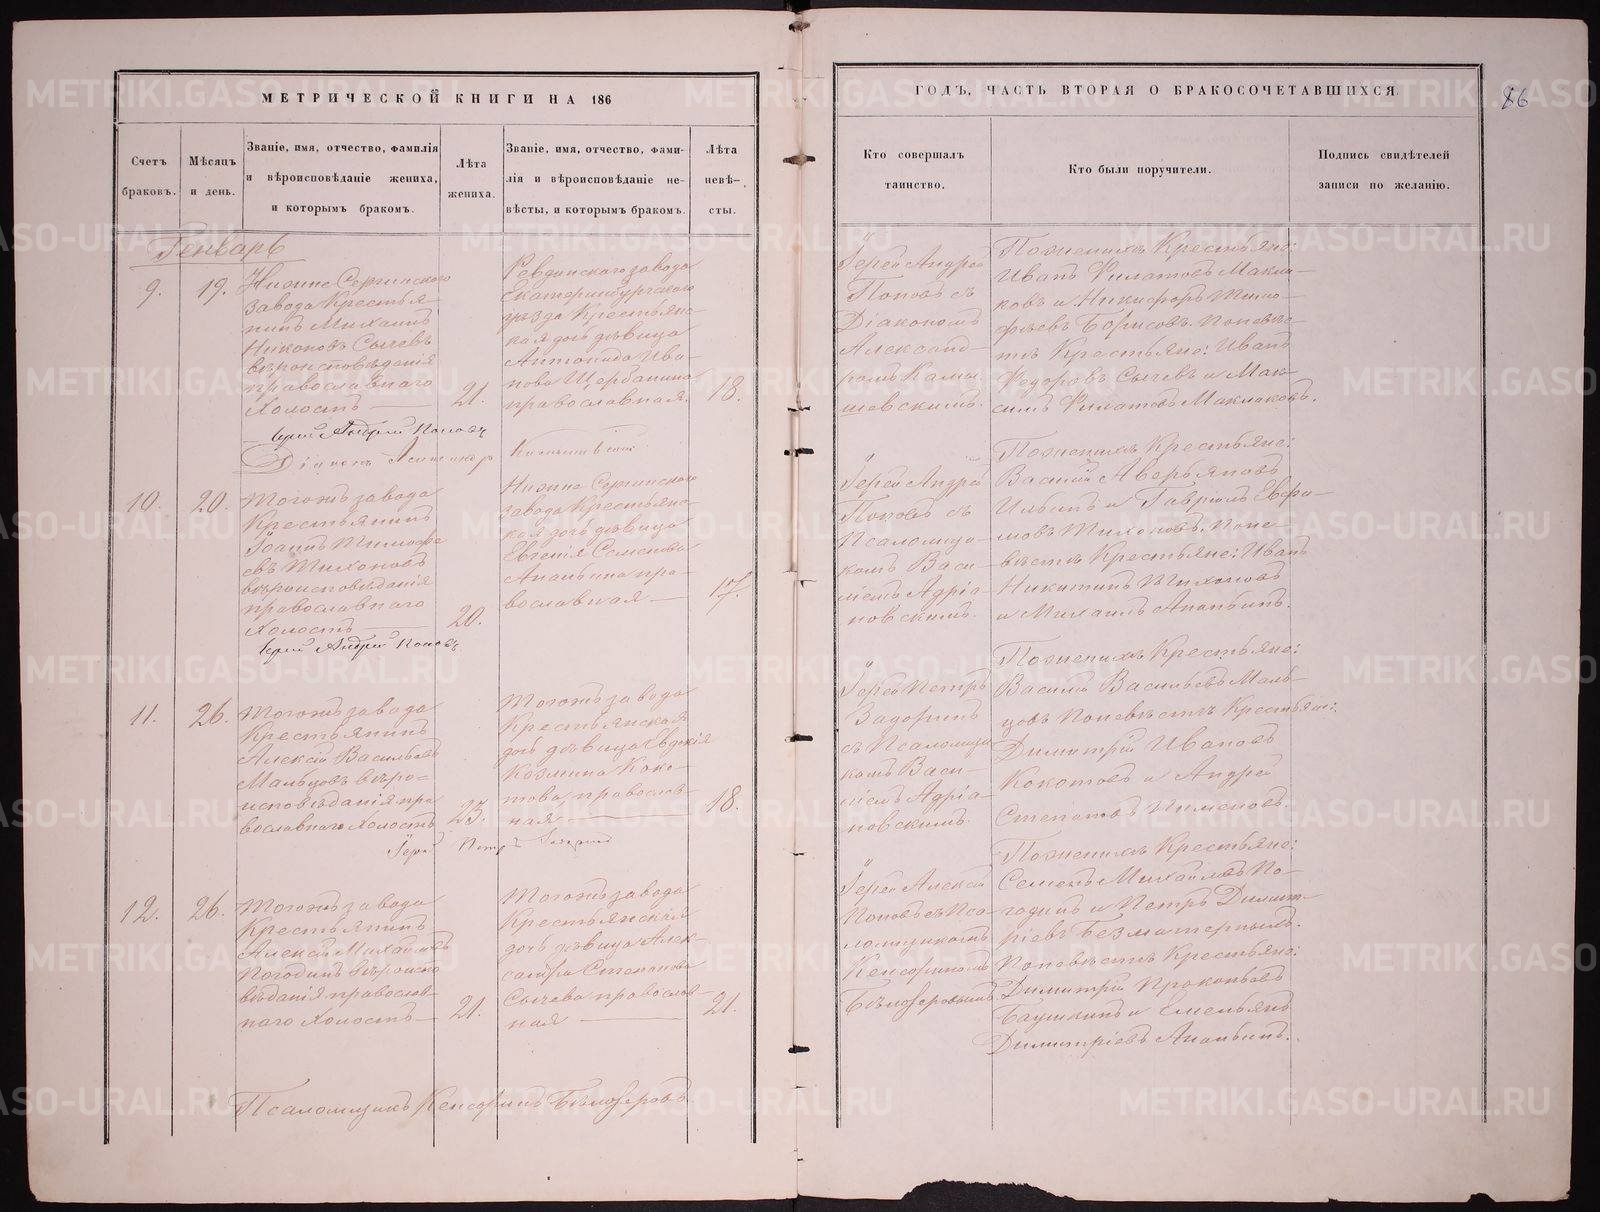 МЕТРИЧЕСКОЙ КНИГИ НА 186
Счетъ
браковъ.
Мѣсяцъ
и день.
Званіе, имя, отчество, фамилія
и вѣроисповѣданіе жениха,
и которымъ бракомъ.
Лѣта
жениха.
Званіе, имя, отчество, фами-
лія и вѣроисповѣданіе не-
вѣсты, и которымъ бракомъ.
Лѣта
невѣ-
сты.
Генварь
9.
19.
Нижне Сергинского
завода Крестья-
нинъ Михаилъ
Никоновъ Сычевъ
вѣроисповѣданія
православнаго
Холостъ
21.
Ревдинскаго завода
Екатеринбургскаго
уѣзда Крестьянс-
кая дочь дѣвица
Антонида Ива-
нова Щербакина
православная.
18.
Іерей Андрей Поповъ
Діаконъ Александръ
10.
20.
Тогожъ завода
Крестьянинъ
Іоаннъ Тимофе
евъ Тихоновъ
вѣроисповѣданія
православнаго
Холостъ
20.
Нижне Сергинскаго
завода Крестьянс-
кая дочь дѣвица
Евгенія Семенова
Ананьина пра-
вославная
17.
Іерей Андрей Поповъ
11.
26.
Тогожъ завода
Крестьянинъ
Алексій Васильевъ
Мальцовъ вѣро-
исповѣданія пра
вославнаго Холостъ
25.
Тогожъ завода
Крестьянская
дочь дѣвица Евдокія
Козмина Коко-
това православ-
ная
18.
Іерей Петръ Задоринъ
12.
26.
Тогожъ завода
Крестьянинъ
Алексій Михайловъ
Погодинъ вѣроиспо
вѣданія православ-
наго Холостъ
21.
Тогожъ завода
Крестьянская
дочь дѣвица Алек-
сандра Степанова
Сычева православ-
ная
21.
Псаломщикъ Кенсоринъ Бѣлозеровъ
ГОДЪ, ЧАСТЬ ВТОРАЯ О БРАКОСОЧЕТАВШИХСЯ.
86
Кто совершалъ
таинство.
Кто были поручители.
Подпись свидѣтелей
записи по желанію.
Іерей Андрей
Поповъ съ
Діакономъ
Александ-
ромъ
Пожених Крестьяне:
Иванъ Филатовъ Макла-
ковъ и Никифоръ Тимо-
фѣевъ Борисовъ. Поневѣс-
тѣ Крестьяне: Иванъ
Федоровъ Сычевъ и Мак-
симъ Филатовъ Маклаковъ.
Іерей Андрей
Поповъ съ
Псаломщи-
комъ Васи-
ліемъ Адріа-
новскимъ.
Поженихъ Крестьяне:
Василій Аверьяновъ
Ильинъ и Гавріилъ Евфи-
мовъ Тихоновъ. Поне-
вѣстѣ Крестьяне: Иванъ
Никитинъ Тихоновъ
и Михаилъ Ананьинъ.
Іерей Петръ
Задоринъ
съ Псаломщи
комъ Васи-
ліемъ Адріа-
новскимъ.
Поженихъ Крестьяне:
Василій Васильевъ Маль-
цовъ Поневѣстѣ Крестьяне:
Димитрій Ивановъ
Кокотовъ и Андрей
Степановъ Пименовъ.
Іерей Алексій
Поповъ съ Пса-
ломщикомъ
Кенсориномъ
Бѣлозеровымъ
Поженихъ Крестьяне:
Семенъ Михайловъ По-
годинъ и Петръ Димит-
ріевъ Безматерныхъ.
Поневѣстѣ Крестьяне:
Димитрій Прокопьевъ
Баушкинъ и Емельянъ
Димитріевъ Ананьинъ.